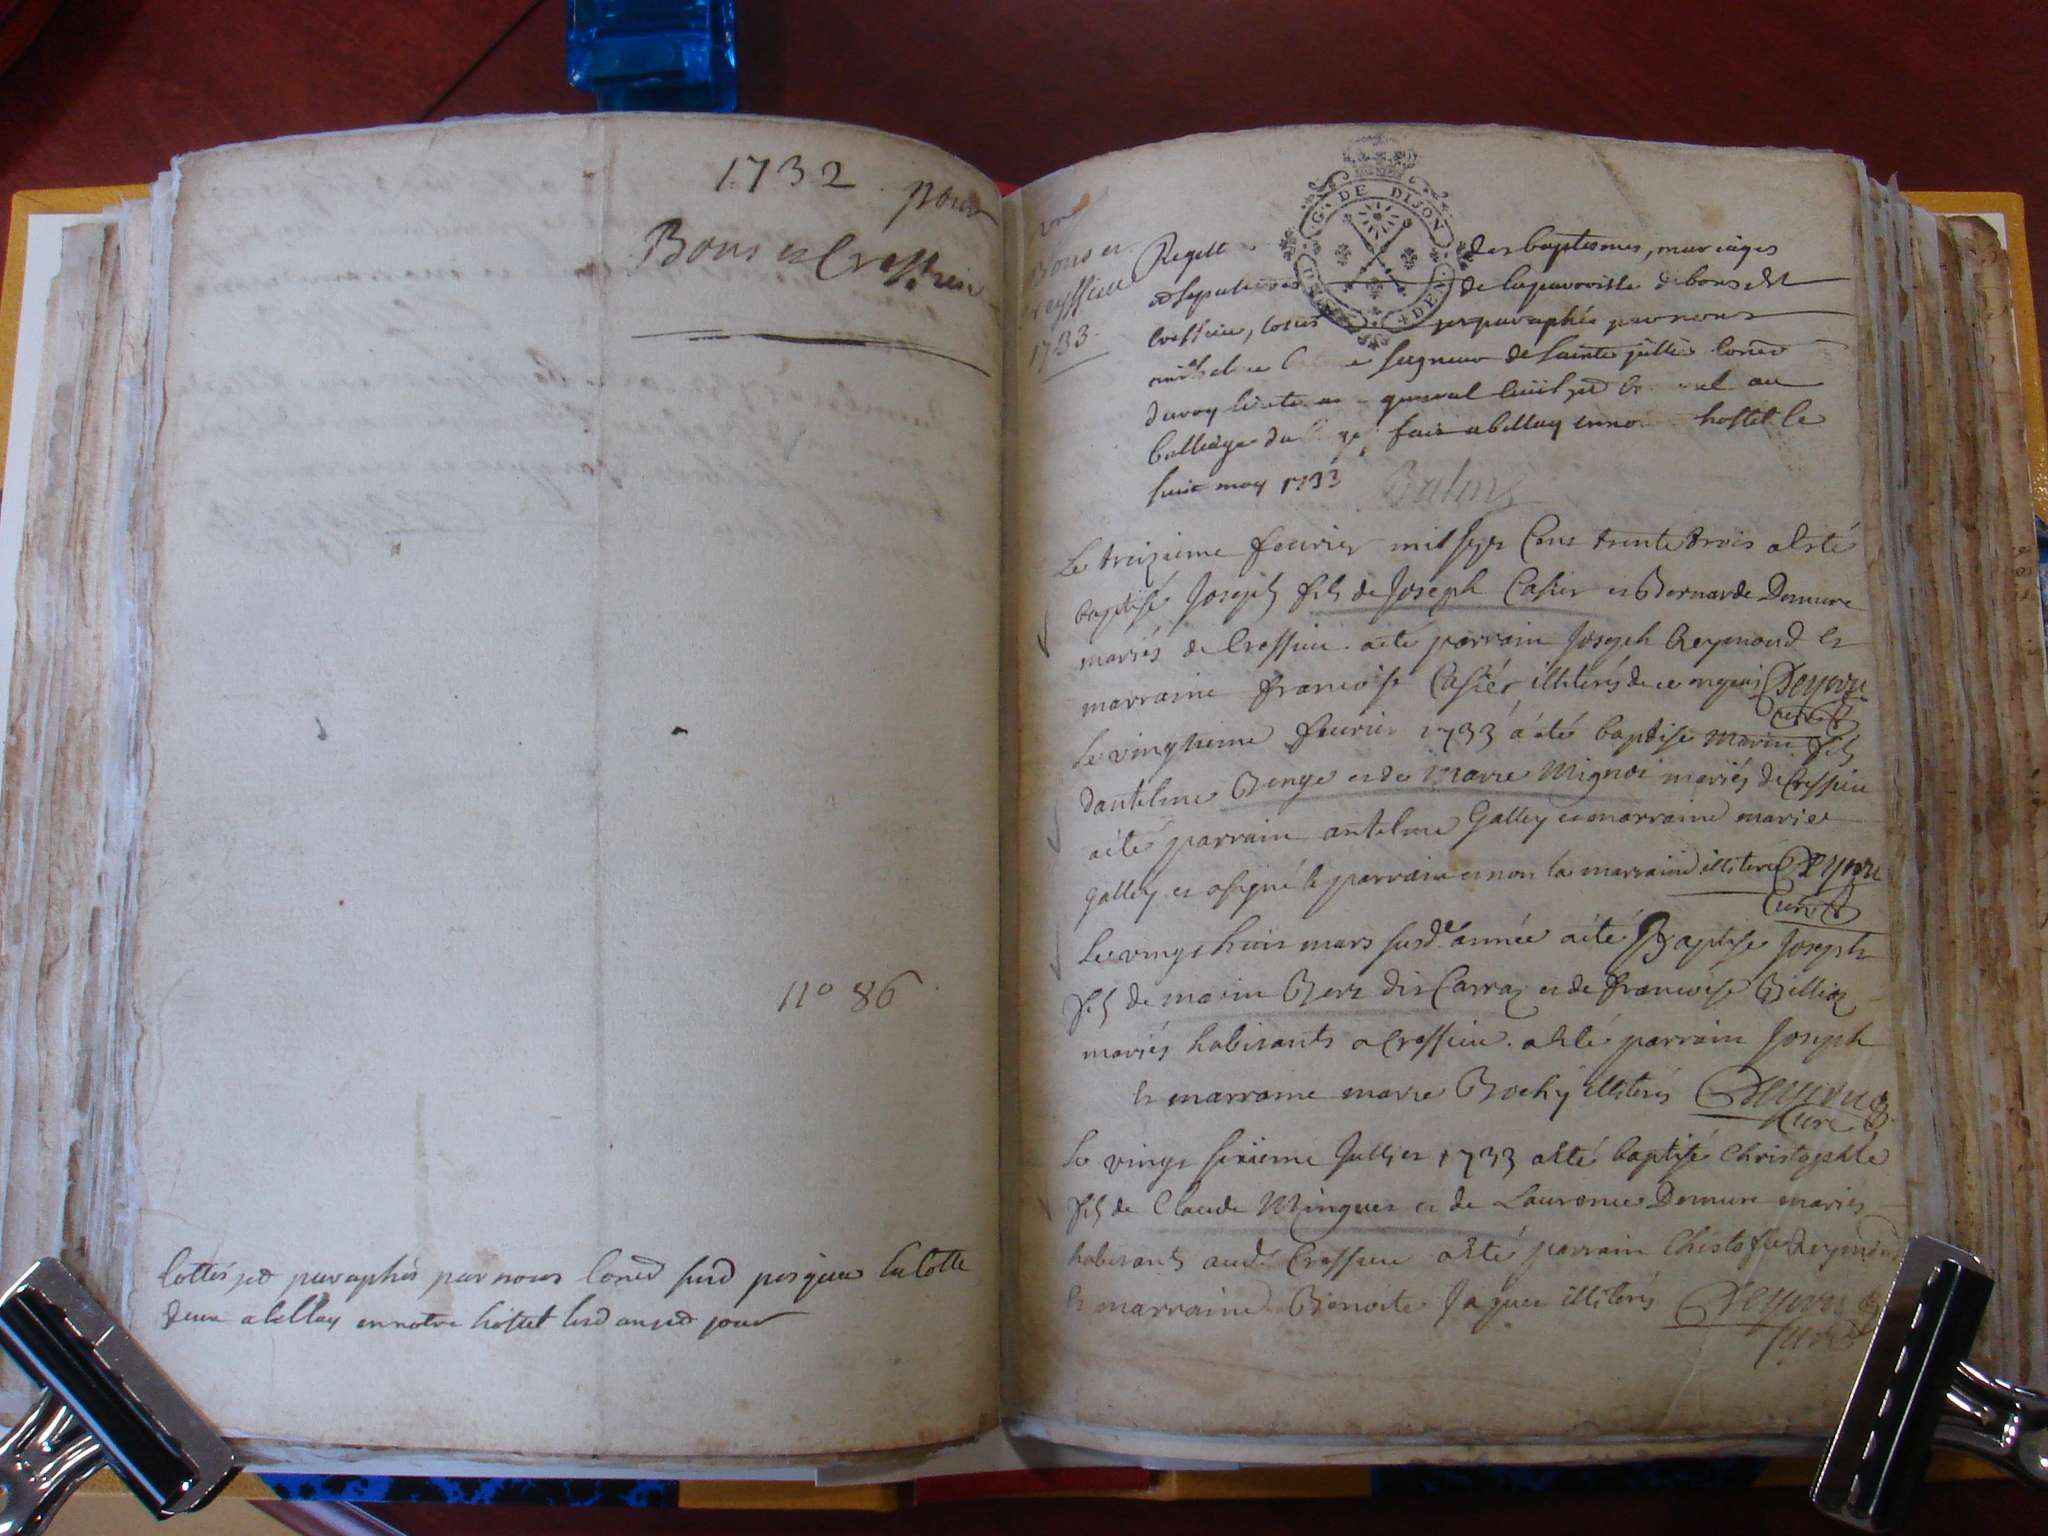 1732 pour
Bons et Cressieu
n° 86
Cottés et paraphés par nous Coner susd jusques la Cotte
deux a belley en notre hostel lesd an et jour
Bons et
Cressieu
1733
G. DE DIJON
GEN. DE
Regist des baptesmes, mariages
et sepultures de la parroisse de bons et
Cressieu, Cottés et paraphés par nous
seigneur de Sainte jullie Coner
du roy lieutenant general au
balliage du fait a belley en hostel le
huit may 1733
Balme
Le treizieme feurier mil sept Cent trente trois a esté
baptisé Joseph fils de Joseph Casier et Bernarde Demure
mariés de Cressieu. a eté parrain Joseph Reymond et
marraine francoise Casier illiterés de ce enquis Deyvru
Curé
Le vingtieme feurier 1733 a été baptise marin fils
dantelme Benge et de marie Mignot mariés de Cressieu
a eté parrain antelme Galley et marraine marie
Galley et a signé le parrain et non la marraine illiterée Deyvru
Curé
Le vingt huit mars susde année a eté Baptise Joseph
fils de marin Bert dit Carraz et de francoise Billion
mariés habitants a Cressieu. a esté parrain Joseph
et marraine marie Bochy illiterés Deyvru
Curé
Le vingt sixieme Jullet 1733 a esté baptisé Christophle
fils de Claude Minguet et de Laurence Demure mariés
habitants aud. Cressieu a esté parrain Christofle Reymond
et marraine Benoite Jaquet illiterés Deyvru
Curé